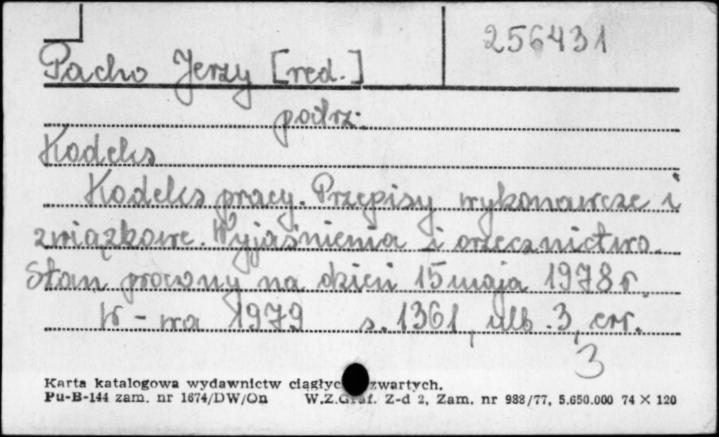 256431
Pacho Jerzy [red.]
patrz:
Kodeks
Kodeks pracy. Przepisy wykonawcze i
związkowe. Wyjaśnienia i orzecznictwo.
Stan prawny na dzień 15 maja 1978 r.
W-wa 1979 s. 1361, nlb. 3, err.
3
Karta katalogowa wydawnictw ciągłych zwartych.
Pu-B-144 zam. nr 1674/DW/On W.Z.Graf. Z-d 2, Zam. nr 988/77, 5.650.000 74 × 120